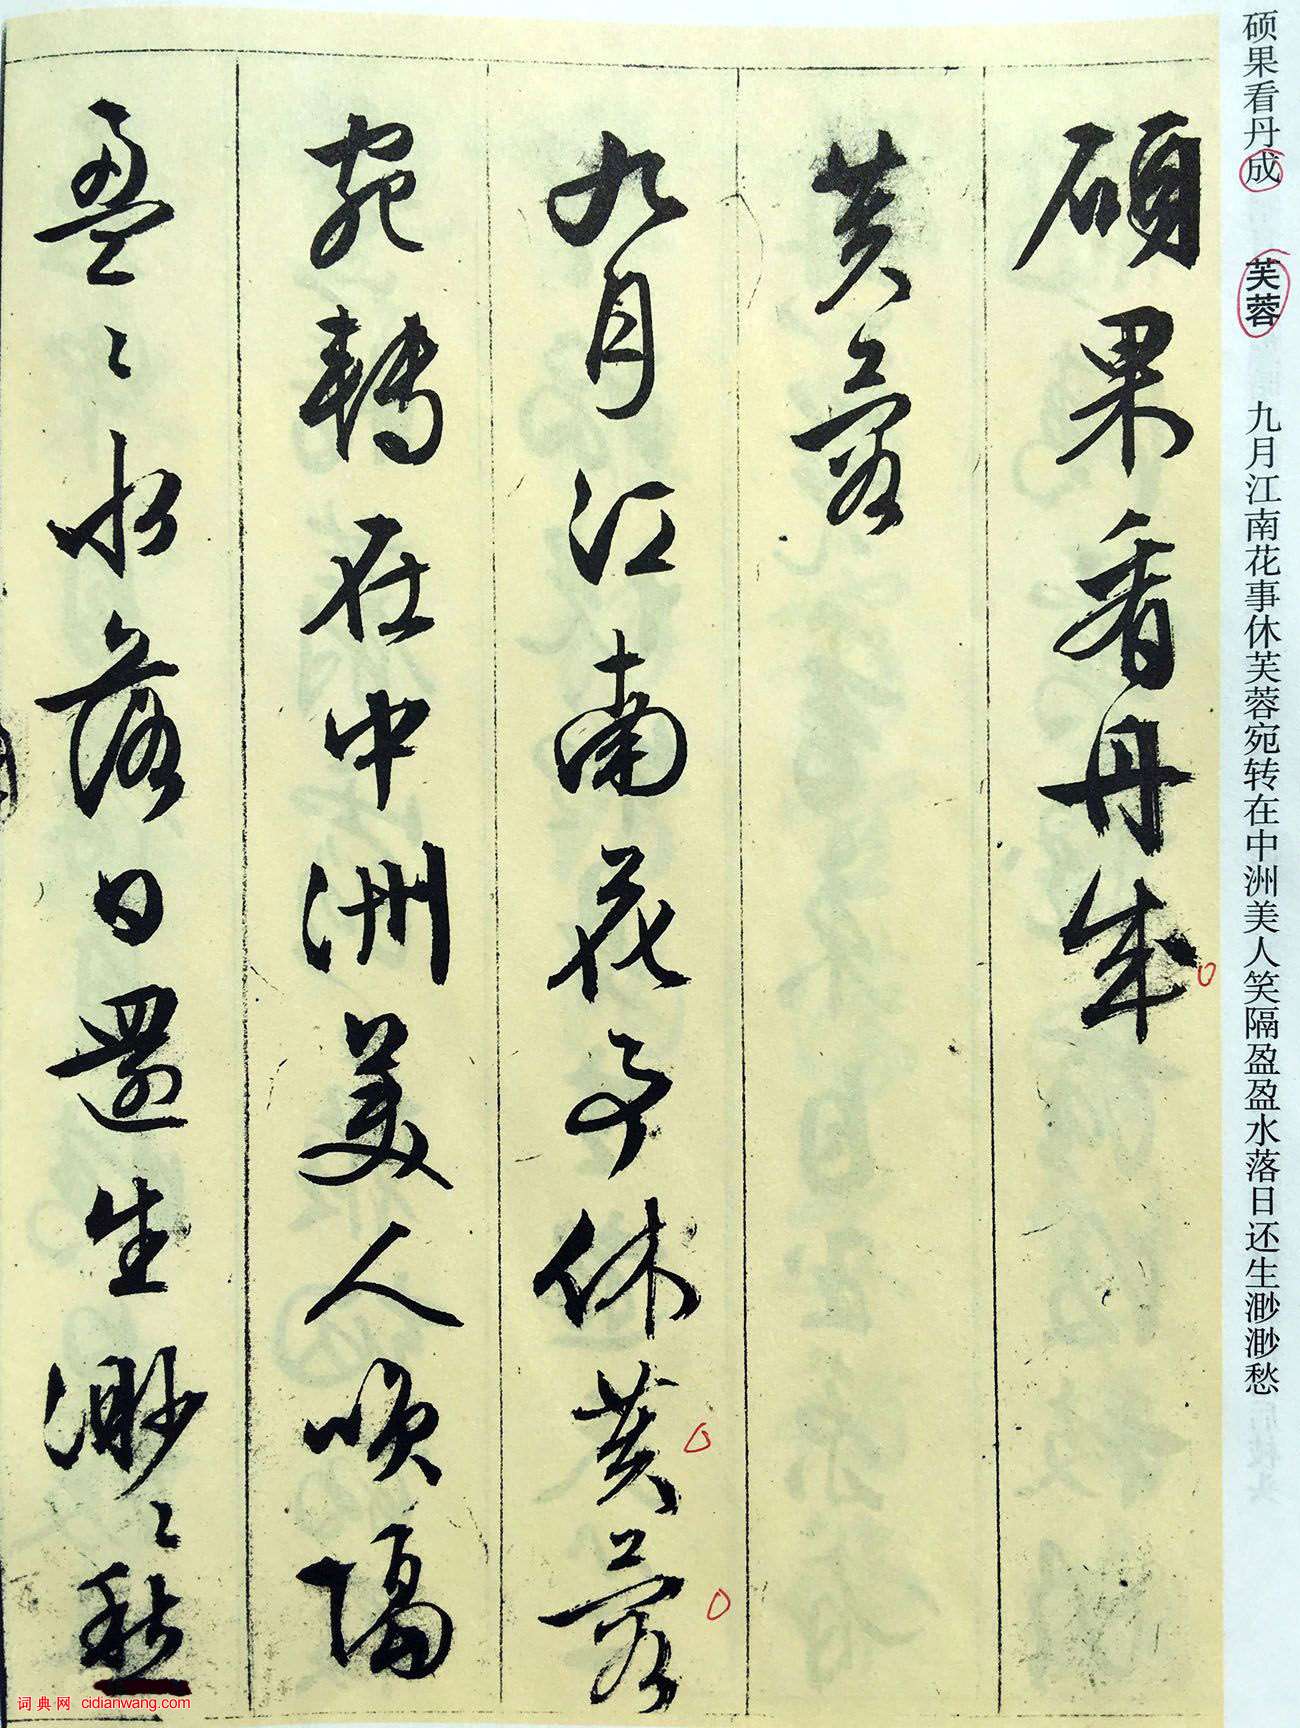 硕果看丹成 芙蓉 九月江南花事休芙蓉宛转在中洲美人笑隔盈盈水落日还生渺渺愁
碩果看丹成
芙蓉
九月江南花事休芙蓉
宛轉在中洲美人咲隔
盈〻水落日還生渺〻愁
词典网 cidianwang.com